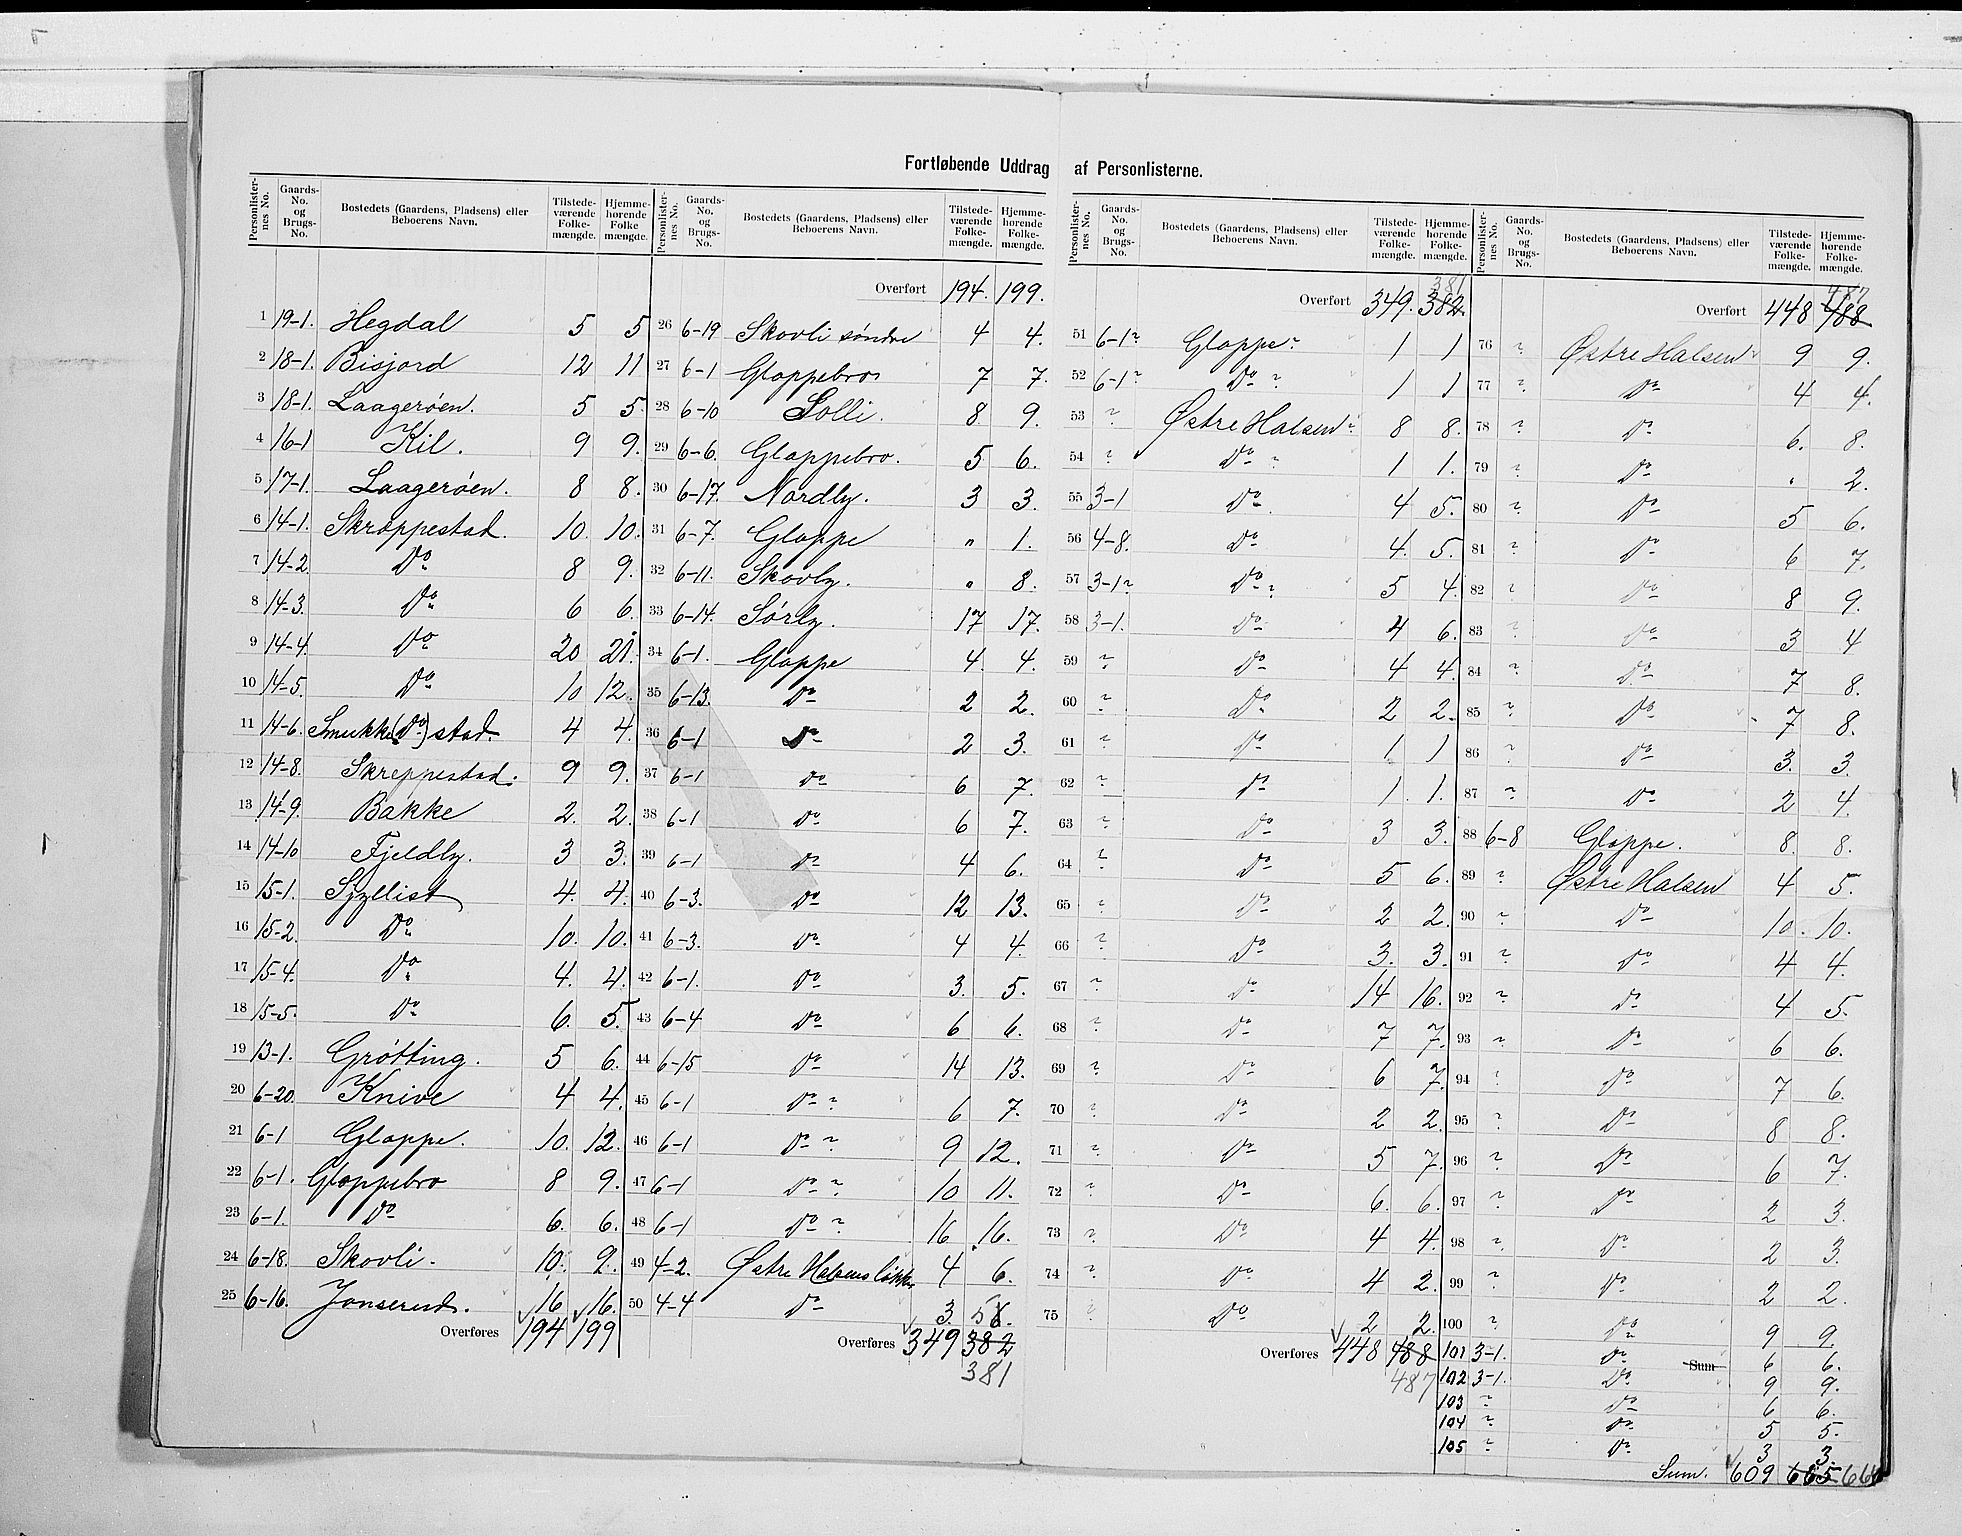 Fortløbende Uddrag af Personlisterne.
Personlisternes No. Gaards-No. og Brugs-No. Bostedets (Gaardens, Pladsens) eller Beboerens Navn. Tilstedeværende Folkemængde. Hjemmehørende Folkemængde.
1 19-1. Hegdal 5 5
2 18-1. Bisjord 12 11
3 18-1. Laagerøen. 5 5.
4 16-1 Kil. 9 9.
5 17-1. Laagerøen. 8 8.
6 14-1. Skreppestad. 10. 10.
7 14-2. Do 8 9.
8 14-3. Do 6 6.
9 14-4. Do 20 21.
10 14-5. Do 10 12.
11 14-6. Smukke(Do)stad. 4 4.
12 14-8. Skreppestad. 9 9.
13 14-9. Bakke 2. 2.
14 14-10 Fjeldby. 3 3.
15 15-1. Syllist 4. 4.
16 15-2. Do 10. 10.
17 15-4. Do 4. 4.
18 15-5. Do 6. 5.
19 13-1. Grøtting. 5 6.
20 6-20. Knive 4 4.
21 6-1 Gloppe. 10. 12.
22 6-1. Gloppebro 8 9.
23 6-1. Do 6. 6.
24 6-18. Skovli. 10. 9.
25 6-16. Jonserud. 16 16.
Overføres 194 199
Personlisternes No. Gaards-No. og Brugs-No. Bostedets (Gaardens, Pladsens) eller Beboerens Navn. Tilstedeværende Folkemængde. Hjemmehørende Folkemængde.
Overført 194. 199.
26 6-19 Skovli søndre 4 4.
27 6-1 Gloppebro 7 7.
28 6-10 Solli. 8. 9.
29 6-6. Gloppebro. 5 6.
30 6-17. Nordby. 3 3.
31 6-7. Gloppe " 1.
32 6-11. Skovby. " 8.
33 6-14. Sørby. 17 17.
34 6-1. Gloppe 4. 4.
35 6-13. Do 2 2.
36 6-1 Do 2 3.
37 6-1 Do 6 7.
38 6-1 Do 6 7.
39 6-1 Do 4 6.
40 6-3. Do 12 13.
41 6-3. Do 4 4.
42 6-1. Do 3. 5.
43 6-4 Do 6 6.
44 6-15 Do 14 13.
45 6-1 Do ? 6 7.
46 6-1 Do ? 9 12.
47 6-1 Do ? 10 11.
48 6-1 Do ? 16 16.
49 4-2. Østre Halsens løkke 4 6.
50 4-4 Do 3. 5 6.
Overføres 349 382
381
Personlisternes No. Gaards-No. og Brugs-No. Bostedets (Gaardens, Pladsens) eller Beboerens Navn. Tilstedeværende Folkemængde. Hjemmehørende Folkemængde.
381
Overført 349. 382.
51 6-1? Gloppe? 1 1
52 6-1? Do ? 1 1
53 ? Østre Halsen? 8 8.
54 ? Do ? 1 1.
55 3-1 Do 4 5.
56 4-8. Do 4. 5.
57 3-1? Do ? 5 4.
58 3-1. Do 4 6.
59 ? Do 4 4.
60 ? Do 2 2.
61 ? Do 1 1
62 ? Do 1. 1.
63 ? Do 3 3.
64 ? Do 5 6.
65 ? Do 2 2.
66 ? Do 3. 3.
67 ? Do 14 16.
68 ? Do 7 7.
69 ? Do 6 7.
70 ? Do 2 2.
71 ? Do 5 7.
72 ? Do 6. 6.
73 ? Do 4 4.
74 ? Do 4 2.
75 ? Do 2 2.
Overføres 448 488
487
Personlisternes No. Gaards-No. og Brugs-No. Bostedets (Gaardens, Pladsens) eller Beboerens Navn. Tilstedeværende Folkemængde. Hjemmehørende Folkemængde.
487
Overført 448 488
76 ? Østre Halsen 9 9.
77 ? Do 4 4.
78 ? Do 6. 8.
79 ? Do " 2.
80 ? Do 5 6.
81 ? Do 6 7.
82 ? Do 8 9.
83 ? Do 3 4
84 ? Do 7 8.
85 ? Do 7 8.
86 ? Do 3. 3.
87 ? Do 2 4.
88 6-8 Gloppe. 8. 8.
89 ? Østre Halsen 4 5.
90 ? Do 10. 10.
91 ? Do 4 4.
92 ? Do 4 5.
93 ? Do 6 6.
94 ? Do 7 6.
95 ? Do 8 8.
96 ? Do 6 7.
97 ? Do 2 3.
98 ? Do 2 3.
99 ? Do 2 2.
100 ? Do 9 9.
101 3-1. Do Sum 6 6.
102 3-1. Do 9 9.
103 ? Do 6 6.
104 ? Do 5 5.
105 ? Do 3 3.
Sum. 609 665